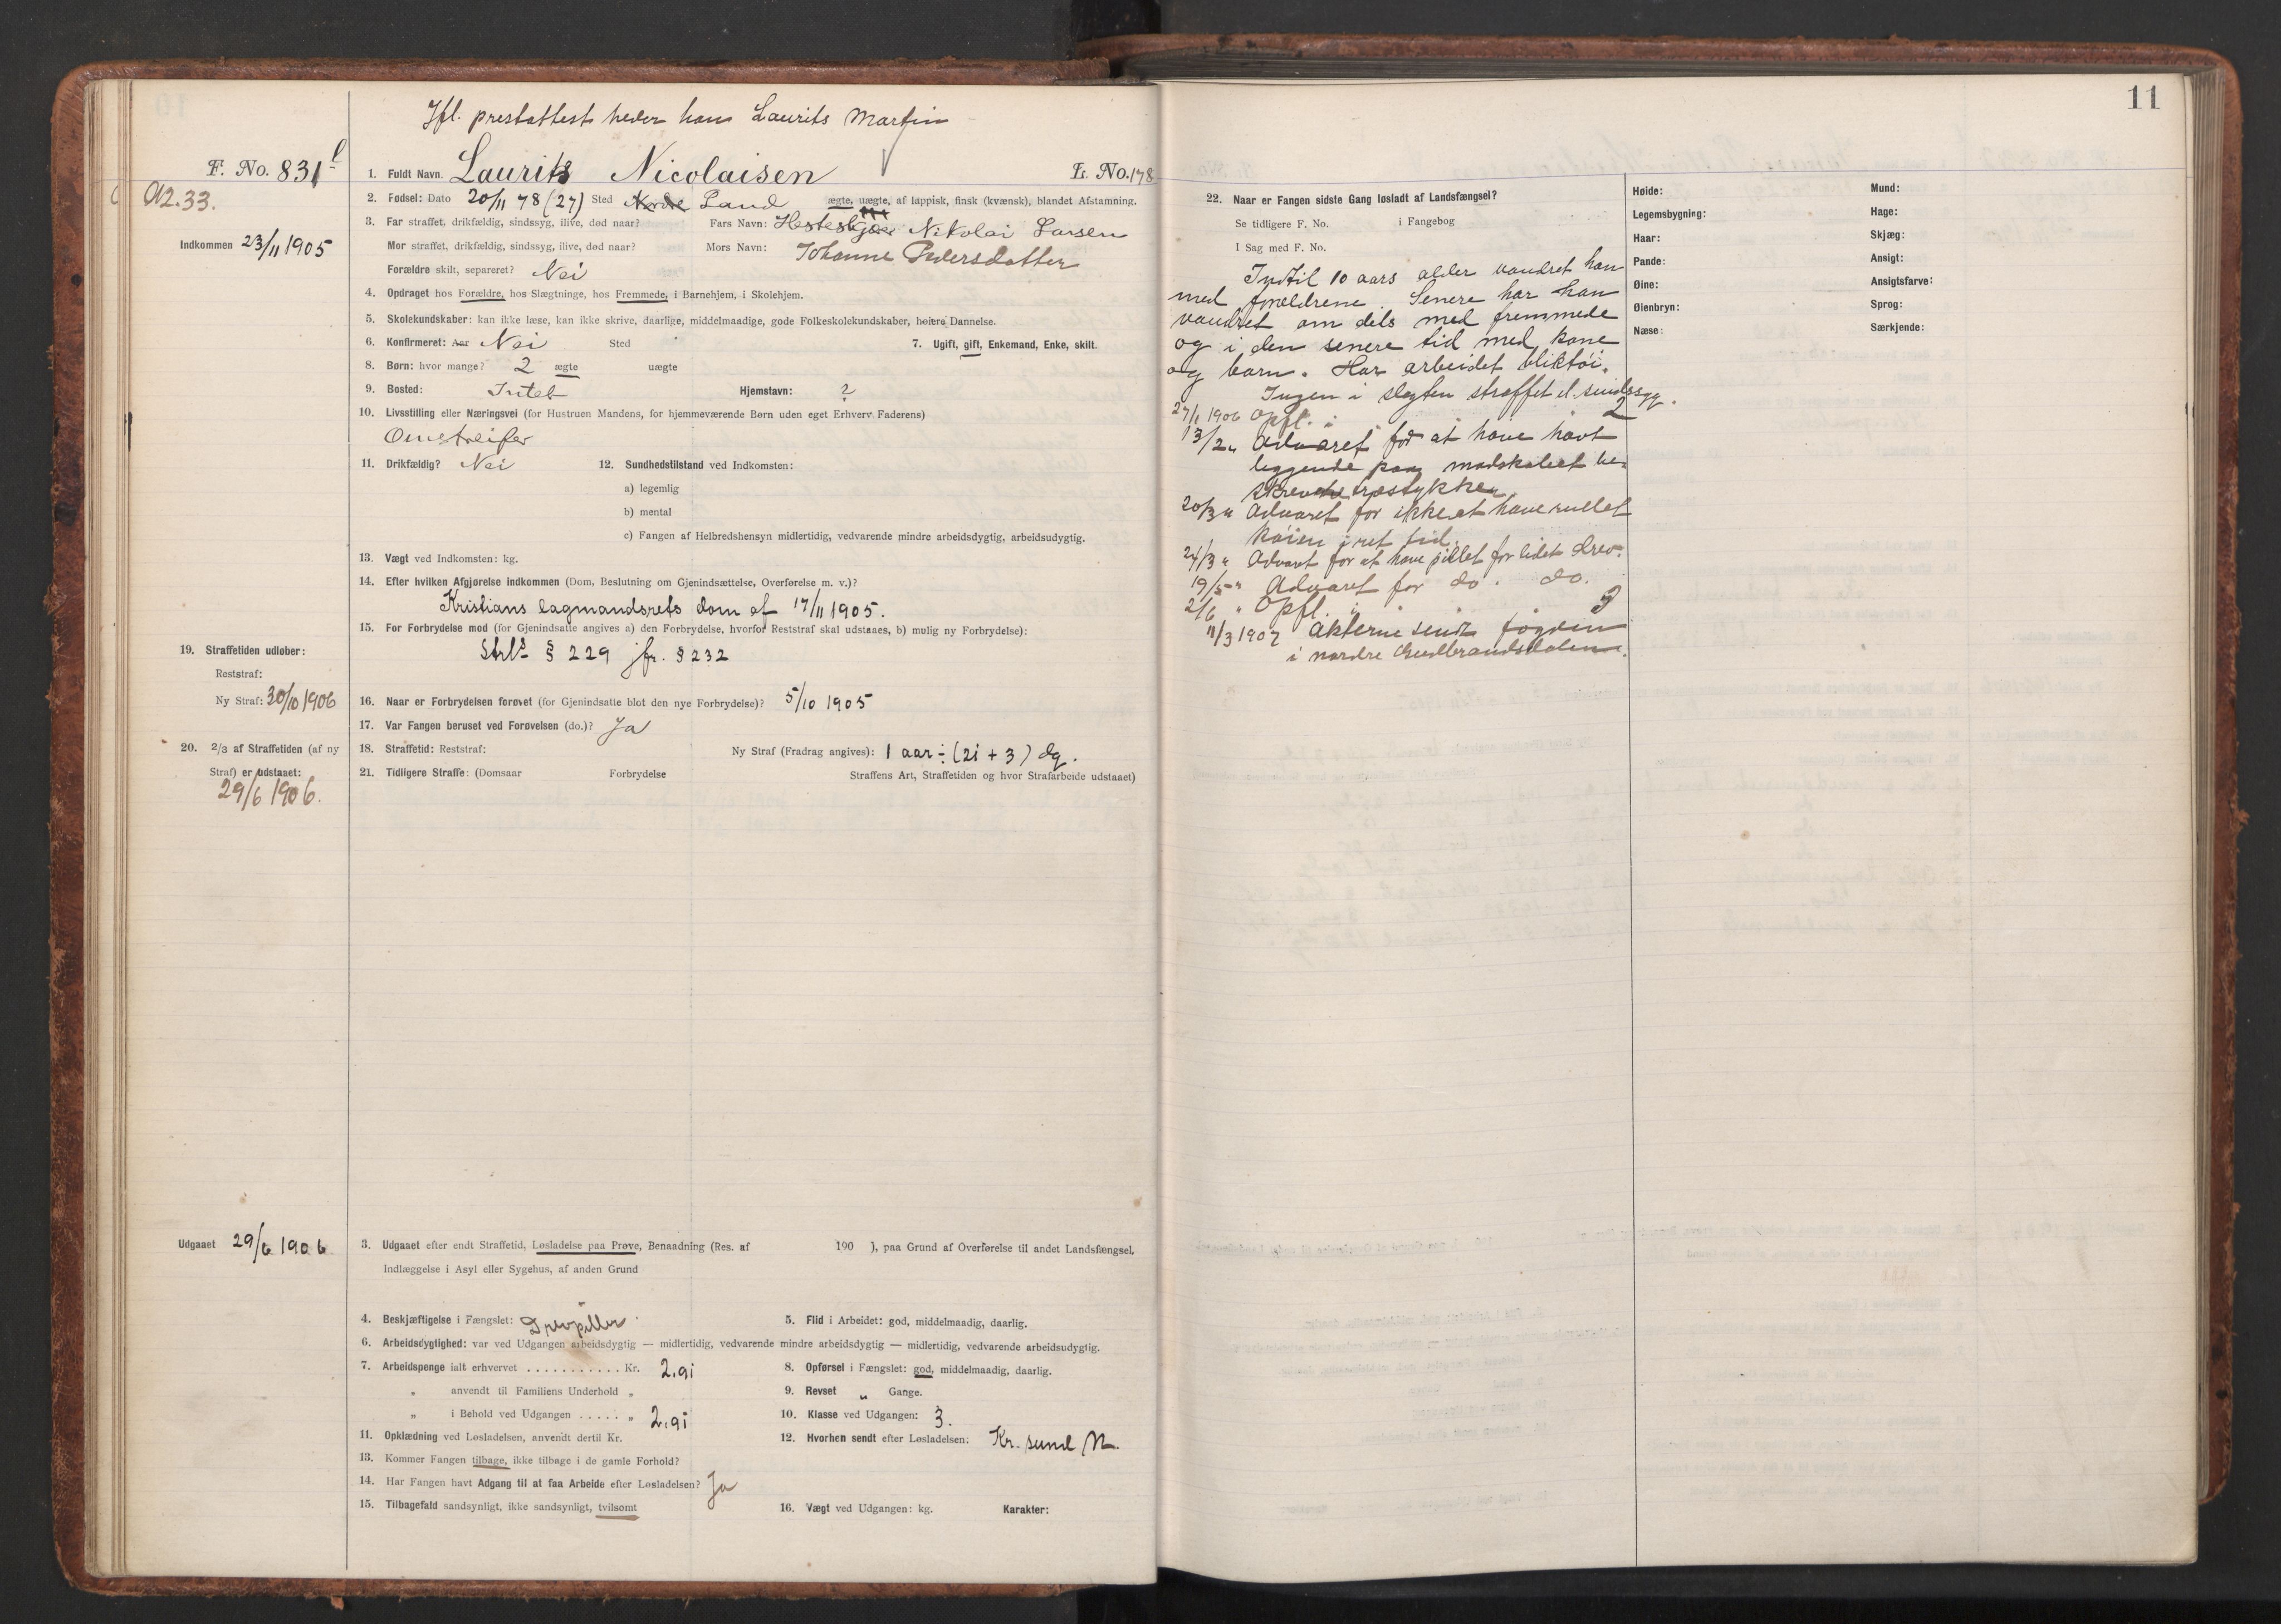 11
Ifl. prestattest heder han Laurits Martin
F. No. 831 l
1. Fuldt Navn. Laurits Nicolaisen L. No. 178
A2.33.
2. Fødsel: Dato 20/11 78 (27) Sted Nordre Land ægte, uægte, af lappisk, finsk (kvænsk), blandet Afstamning.
Indkommen 23/11 1905
3. Far straffet, drikfældig, sindssyg, ilive, død naar? Fars Navn: Nikolai Larsen
Mor straffet, drikfældig, sindssyg, ilive, død naar? Mors Navn: Johanne Pedersdatter
Forældre skilt, separeret? Nei
4. Opdraget hos Forældre, hos Slægtninge, hos Fremmede, i Barnehjem, i Skolehjem.
5. Skolekundskaber: kan ikke læse, kan ikke skrive, daarlige, middelmaadige, gode Folkeskolekundskaber, høiere Dannelse.
6. Konfirmeret: Aar Nei Sted 7. Ugift, gift, Enkemand, Enke, skilt.
8. Børn: hvor mange? 2 ægte uægte
9. Bosted: Intet Hjemstavn: ?
10. Livsstilling eller Næringsvei (for Hustruen Mandens, for hjemmeværende Børn uden eget Erhverv Faderens)
Omstreifer
11. Drikfældig? Nei 12. Sundhedstilstand ved Indkomsten:
a) legemlig
b) mental
c) Fangen af Helbredshensyn midlertidig, vedvarende mindre arbeidsdygtig, arbeidsudygtig.
13. Vægt ved Indkomsten: kg.
14. Efter hvilken Afgjørelse indkommen (Dom, Beslutning om Gjenindsættelse, Overførelse m. v.)?
Kristians lagmandsrets dom af 17/11 1905.
15. For Forbrydelse mod (for Gjenindsatte angives a) den Forbrydelse, hvorfor Reststraf skal udstaaes, b) mulig ny Forbrydelse):
Strl. § 229 jfr. § 232
19. Straffetiden udløber:
Reststraf:
Ny Straf: 30/10 1906
16. Naar er Forbrydelsen forøvet (for Gjenindsatte blot den nye Forbrydelse)? 5/10 1905
17. Var Fangen beruset ved Forøvelsen (do.)? Ja
20. 2/3 af Straffetiden (af ny
Straf) er udstaaet:
29/6 1906.
18. Straffetid: Reststraf: Ny Straf (Fradrag angives): 1 aar ÷ (21 + 3) dg.
21. Tidligere Straffe: (Domsaar Forbrydelse Straffens Art, Straffetiden og hvor Strafarbeide udstaaet)
Udgaaet 29/6 1906
3. Udgaaet efter endt Straffetid, Løsladelse paa Prøve, Benaadning (Res. af 190 ), paa Grund af Overførelse til andet Landsfængsel.
Indlæggelse i Asyl eller Sygehus, af anden Grund
4. Beskjæftigelse i Fængslet: Drevpiller 5. Flid i Arbeidet: god, middelmaadig, daarlig.
6. Arbeidsdygtighed: var ved Udgangen arbeidsdygtig — midlertidig, vedvarende mindre arbeidsdygtig — midlertidig, vedvarende arbeidsudygtig.
7. Arbeidspenge ialt erhvervet . . . . . . . . . . . Kr. 2.91 8. Opførsel i Fængslet: god, middelmaadig, daarlig.
„ anvendt til Familiens Underhold „ 9. Revset „ Gange.
„ i Behold ved Udgangen . . . . . „ 2.91 10. Klasse ved Udgangen: 3.
11. Opklædning ved Løsladelsen, anvendt dertil Kr. 12. Hvorhen sendt efter Løsladelsen: Kr. sund N.
13. Kommer Fangen tilbage, ikke tilbage i de gamle Forhold?
14. Har Fangen havt Adgang til at faa Arbeide efter Løsladelsen? Ja
15. Tilbagefald sandsynligt, ikke sandsynligt, tvilsomt 16. Vægt ved Udgangen: kg. Karakter:
22. Naar er Fangen sidste Gang løsladt af Landsfængsel?
Se tidligere F. No. i Fangebog
I Sag med F. No.
Indtil 10 aars alder vandret han
med forældrene. Senere har han
vandret om dels med fremmede
og i den senere tid med kone
og barn. Har arbeidet bliktøi.
Ingen i slegten straffet el. sindssyg.
27/1 1906 Opfl. i 2
13/2 " Advaret for at have havt
liggende paa madskabet be-
skrevne træstykker
20/3 " Advaret for ikke at have rullet
køien i ret tid.
24/3 " Advaret for at have pillet for lidet drev.
19/5 " Advaret for do. do.
2/6 " Opfl. i 3
11/3 1907 Akterne sendt fogden
i nordre Gudbrandsdalen.
Høide: Mund:
Legemsbygning: Hage:
Haar: Skjæg:
Pande: Ansigt:
Øine: Ansigtsfarve:
Øienbryn: Sprog:
Næse: Særkjende: